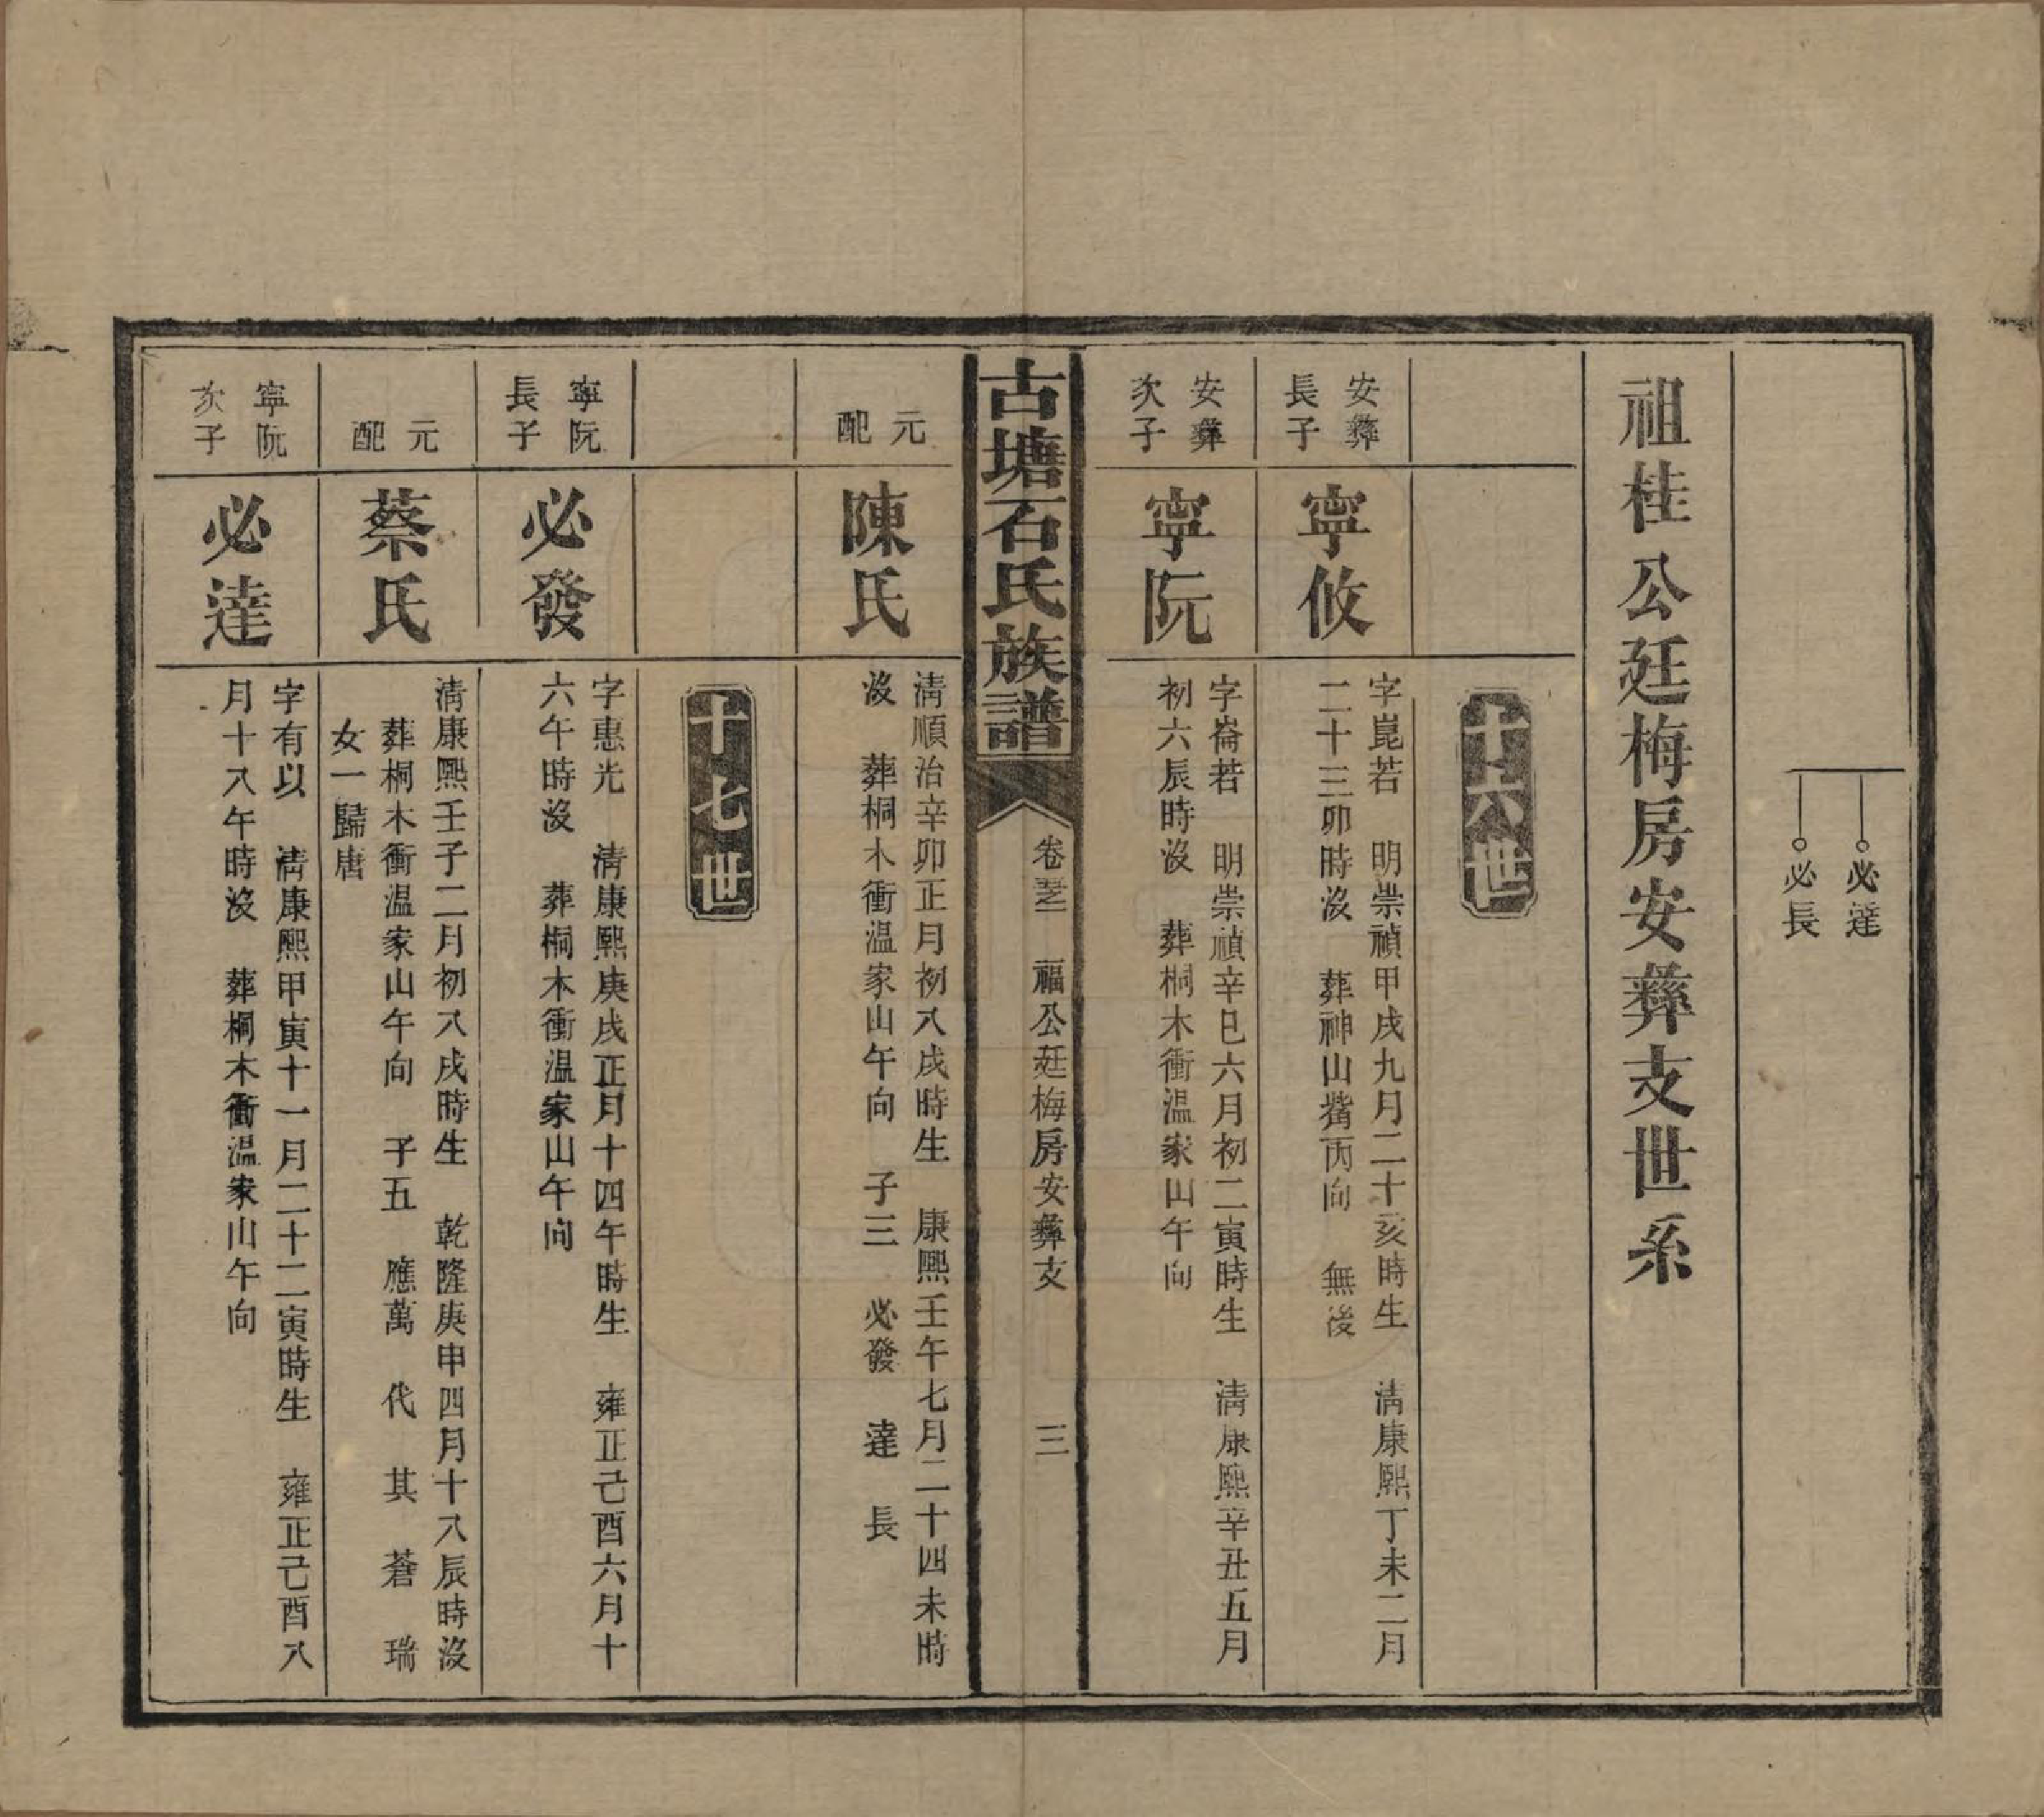 必達
必長
祖桂公廷梅房安彝支世系
十六世
安彝
長子
寧攸
字崑若　明崇禎甲戌九月二十亥時生　清康熙丁未二月
二十三卯時沒　葬神山觜丙向　無後
安彝
次子
寧阮
字崙若　明崇禎辛巳六月初二寅時生　清康熙辛丑五月
初六辰時沒　葬桐木衝温家山午向
古塘石氏族譜
卷　福公廷梅房安彝支　三
元
配
陳氏
清順治辛卯正月初八戌時生　康熙壬午七月二十四未時
沒　葬桐木衝温家山午向　子三　必發　達　長
十七世
寧阮
長子
必發
字惠光　清康熙庚戌正月十四午時生　雍正己酉六月十
六午時沒　葬桐木衝温家山午向
元
配
蔡氏
清康熙壬子二月初八戌時生　乾隆庚申四月十八辰時沒
葬桐木衝温家山午向　子五　應萬　代　其　蒼　瑞
女一歸唐
寧阮
次子
必達
字有以　清康熙甲寅十一月二十二寅時生　雍正己酉八
月十八午時沒　葬桐木衝温家山午向